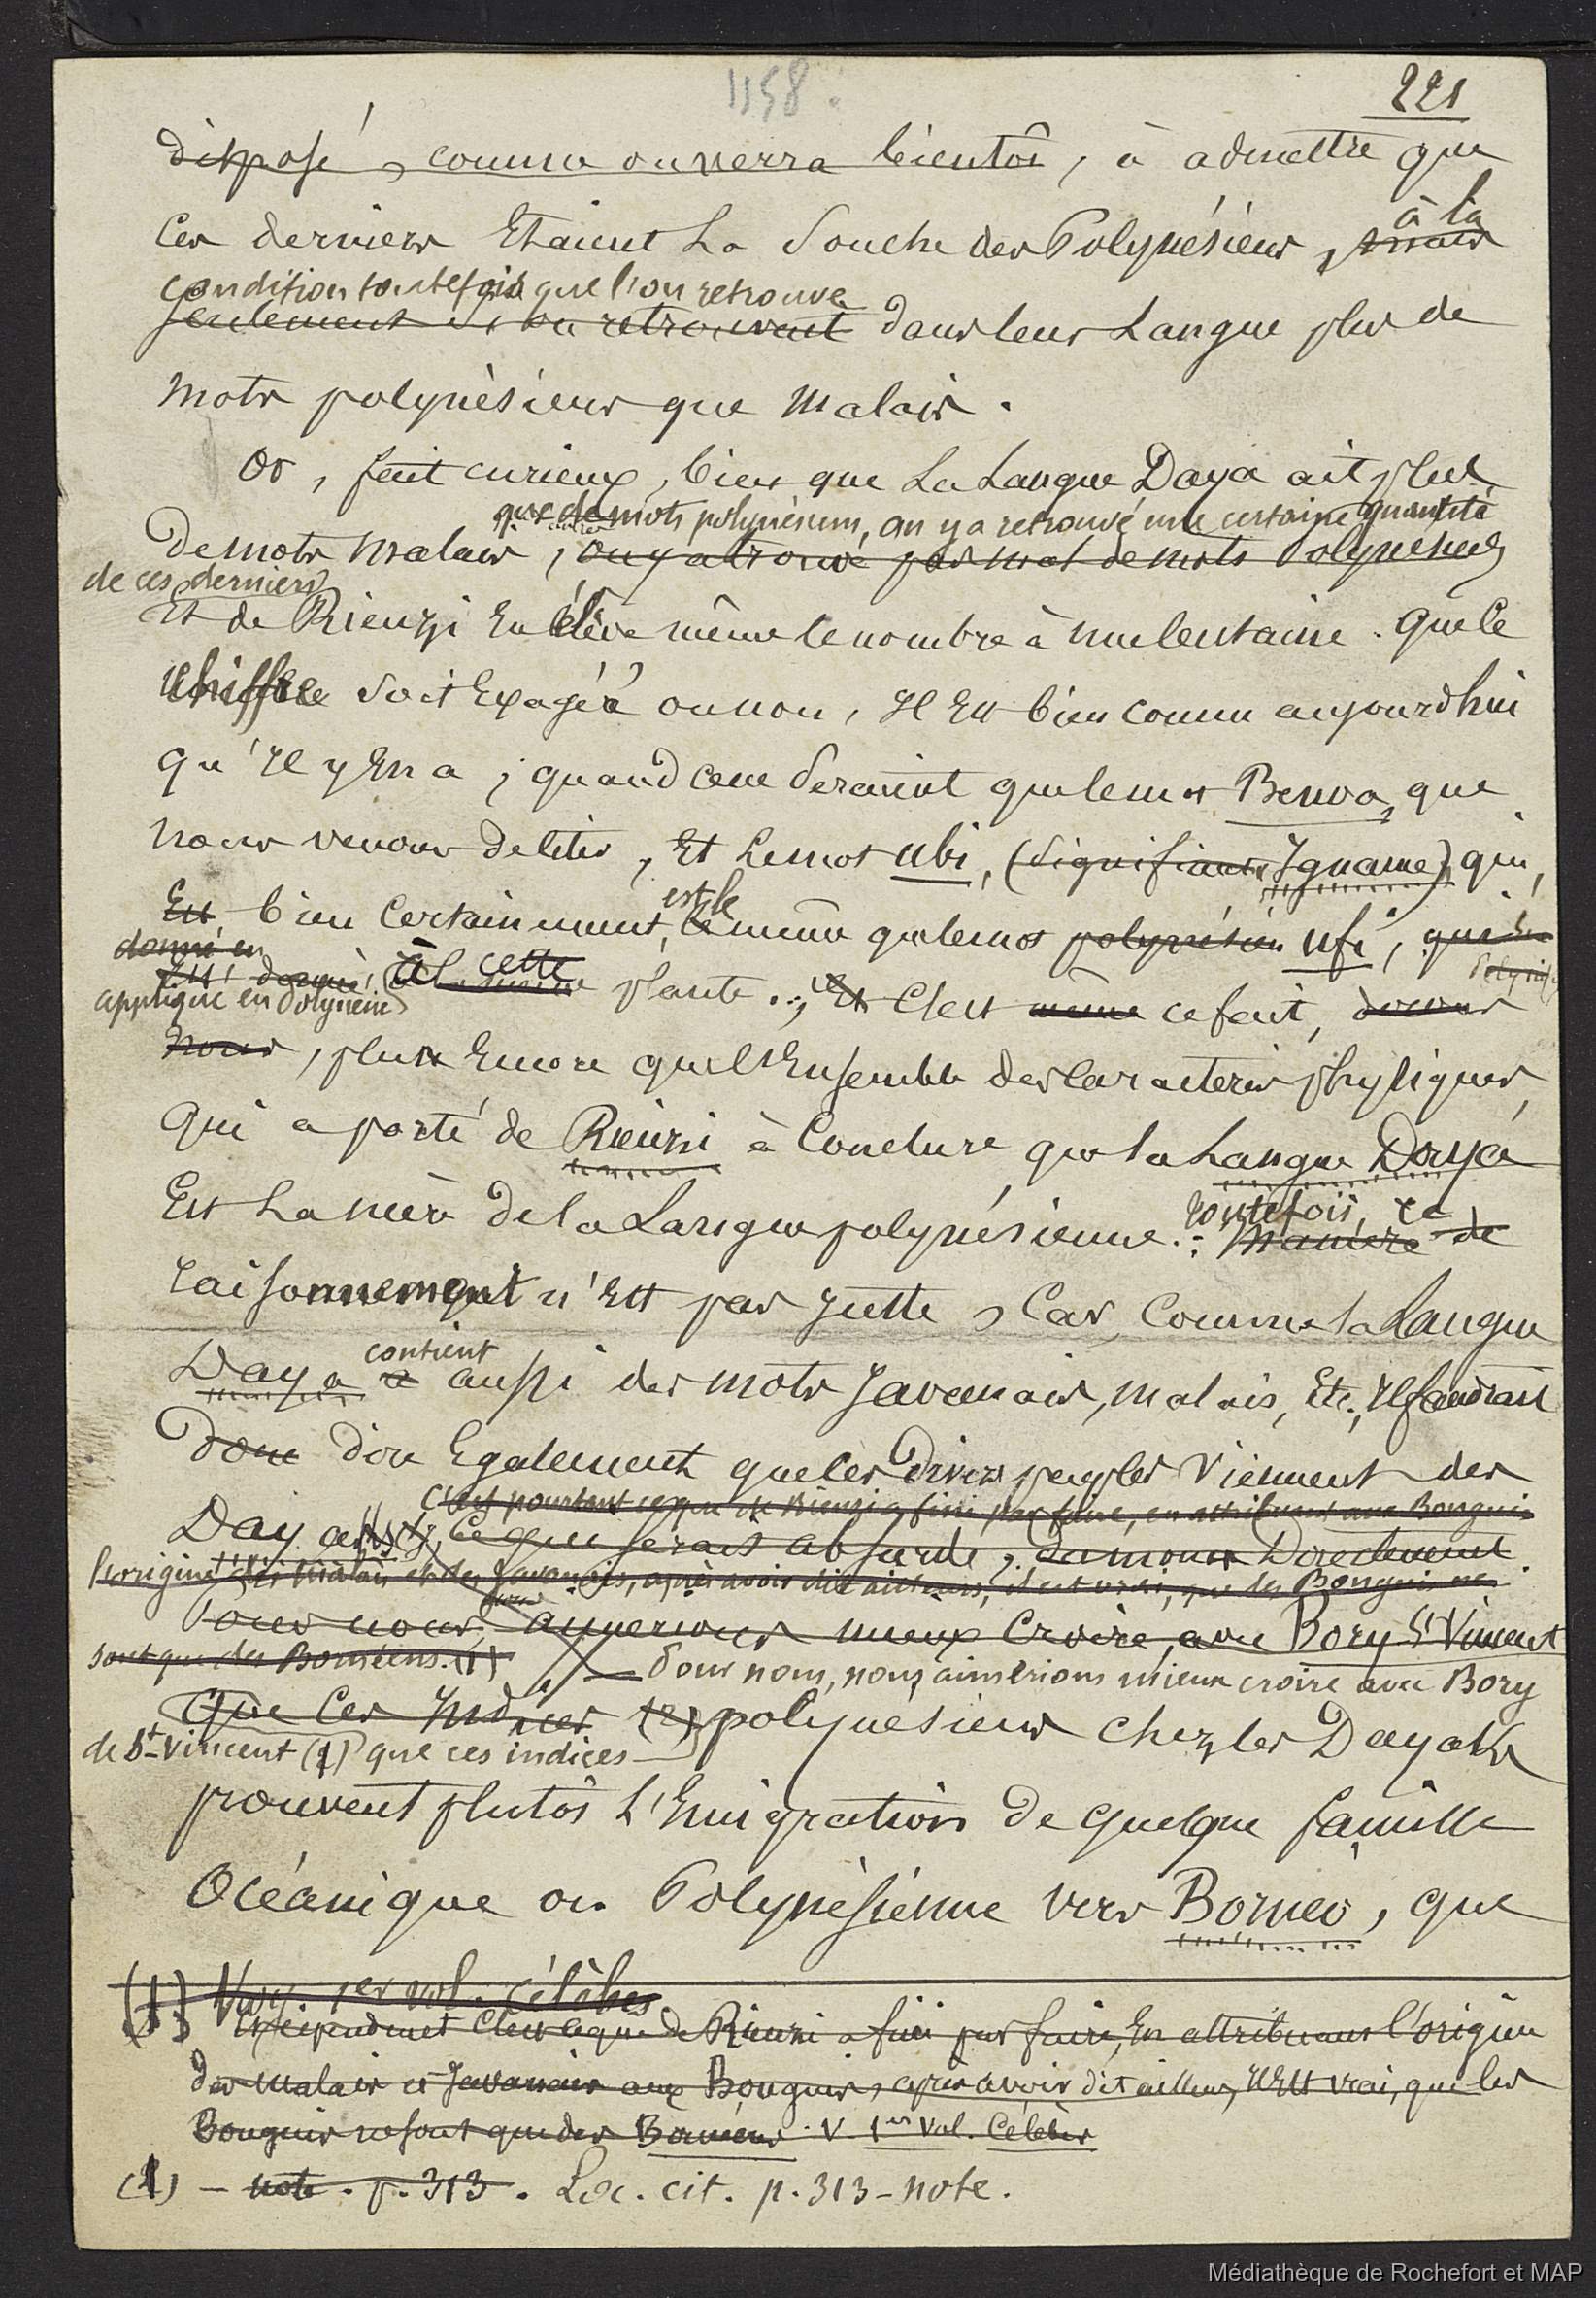 1158.
221
disposé, comme on verra bientôt, à admettre que
ces derniers étaient la souche des Polynésiens, mais
à la
condition toutefois que l'on retrouve
seulement si on retrouvait dans leur langue plus de
mots polynésiens que malais.
Or, fait curieux, bien que la langue Daya ait plus
que de mots polynésiens, on y a retrouvé une certaine quantité
de mots malais, on y a trouvé pas mal de mots Polynésiens
de ces derniers
Et de Rienzi en élève même le nombre à une centaine. Que ce
chiffre soit exagéré ou non, il est bien connu aujourd'hui
qu'il y en a, quand ce ne seraient que le mot Benoa, que
nous venons de citer, et le mot ubi, (signifiant Igname), qui,
est le
Est bien certainement, le même que le mot polynésien ufi, qui
donné en
Polynésie
Est donné, à la même cette plante.; Et C'est même ce fait,
appliqué en Polynésie
nous, plus encore que l'ensemble des caractères physiques,
qui a porté de Rienzi à conclure que la langue Daya
Est la mère de la langue polynésienne.: manière de
toutefois, ce
raisonnement n'est pas juste, car, comme la langue
contient
Daya a aussi des mots Javanais, malais, etc., il faudrait
donc dire également que les divers peuples viennent des
C'est pourtant ce que de Rienzi a fini par faire, en attribuant aux Bouguis
Dayas, ce qui serait absurde, du moins Directement.
l'origine des Malais et des Javanais, après avoir dit ailleurs, il est vrai, que les Bouguis ne
Pour nous, aimerions mieux croire, avec Bory St Vincent
sont que des Bornéens. (1)
Pour nous, nous aimerions mieux croire avec Bory
que ces indices (2) polynésiens chez les Dayaks
de St-Vincent (1) que ces indices
prouvent plutôt l'émigration de quelque famille
Océanique ou Polynésienne vers Bornéo, que
(1) Voy. 1er vol. Célèbes.
Cependant C'est ce que de Rienzi a fini par faire, en attribuant l'origine
des malais et Javanais aux Bouguis, après avoir dit ailleurs, il est vrai, que les
Bouguis ne sont que des Bornéens. V. 1er Vol. Célèbes
(1) - note. p. 313. Loc. cit. p. 313 - note.
Médiathèque de Rochefort et MAP